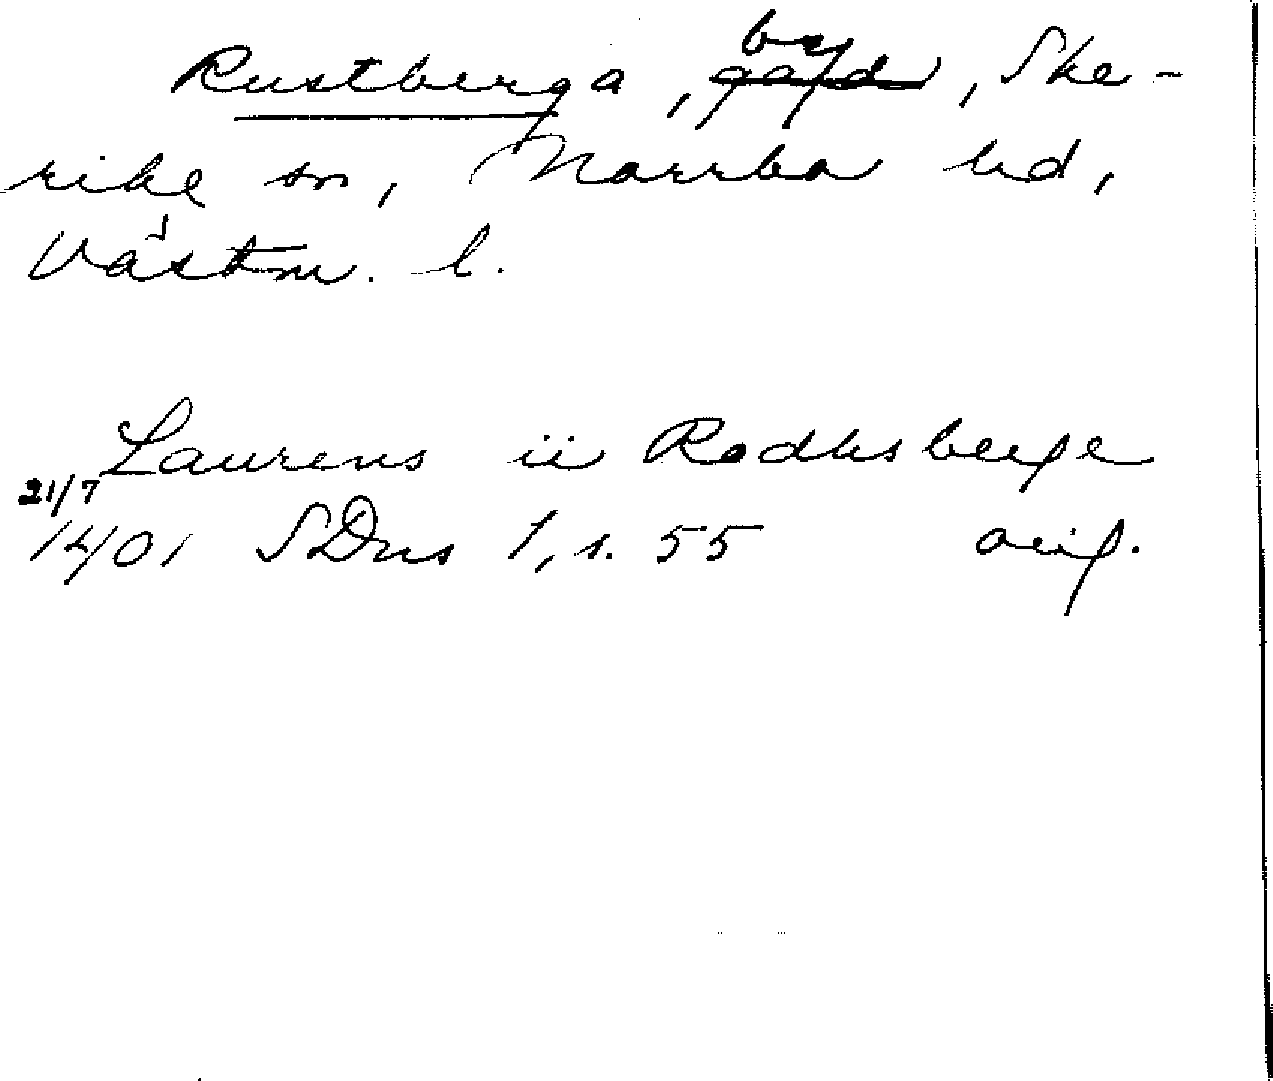 Rustberga, by, Ske-
rike sn, Norrbo hd,
Västm. l.
Laurens ii Rodhsberge
21/7
1401 SDns 1, s. 55 orig.